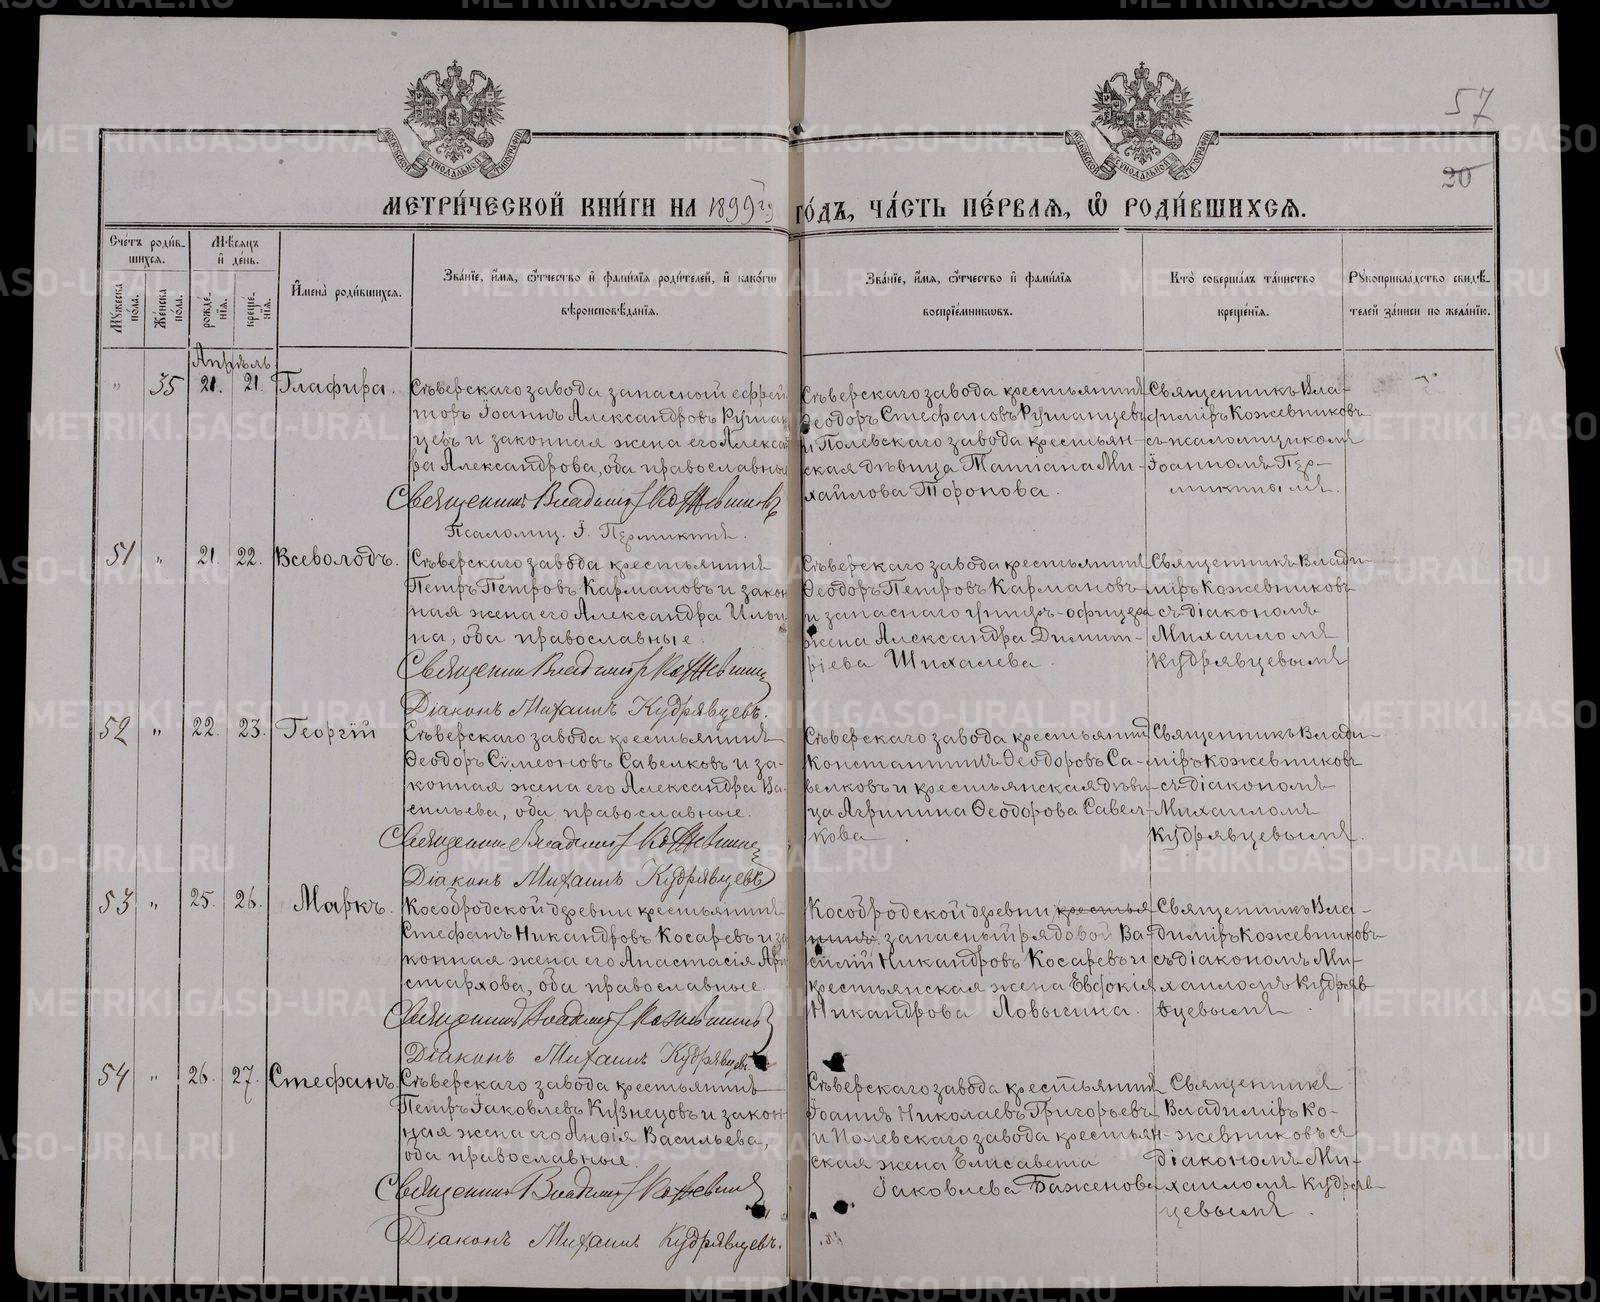 57
20
МЕТРИ́ЧЕСКОЙ КНИ́ГИ НА 1899 г.
ГО́ДЪ, ЧА́СТЬ ПЕ́РВАЯ, Ѽ РОДИ́ВШИХСЯ.
Сче́тъ роди́в-
шихся.
Мѣ́сяцъ
и҆ де́нь.
Му́жеска по́ла.
Же́нска по́ла.
рожде́-
нїѧ.
креще́-
нїѧ.
И҆мена̀ роди́вшихся.
Зва́нїе, и҆́мя, ѻ҆́тчество и҆ фами́лїя роди́телей, и҆ како́гѡ
вѣроисповѣ́данїя.
Зва́нїе, и҆́мя, ѻ҆́тчество и҆ фами́лїя
воспрїе́мниковъ.
Кто̀ соверша́лъ та́инство
креще́нїя.
Рꙋкоприкла́дство свидѣ́-
телей за́писи по жела́нїю.
Апрѣль
" 35 20. 21. Глафира.
Сѣверскаго завода запасной ефрей
торъ Іоаннъ Александровъ Румян
цевъ и законная жена его Алексан
ра Александрова, оба православные
Священникъ Владиміръ Кожевниковъ
Псаломщ. І. Пермикинъ.
Сѣверскаго завода крестьянинъ
Ѳеодоръ Стефановъ Румянцевъ
и Полевскаго завода крестьян-
ская дѣвица Татіана Ми-
хайлова Торопова.
Священникъ Вла-
диміръ Кожевниковъ
съ псаломщикомъ
Іоанномъ Пер-
микинымъ.
51 " 21. 22. Всеволодъ.
Сѣверскаго завода крестьянинъ
Петръ Петровъ Кармановъ и закон
ная жена его Александра Илои
на, оба православные.
Священникъ Владиміръ Кожевников
Діаконъ Михаилъ Кудрявцевъ.
Сѣверскаго завода крестьянинъ
Ѳеодоръ Петровъ Кармановъ
и запаснаго унтеръ-офицера
жена Александра Димит-
ріева Шихалева.
Священникъ Влади-
міръ Кожевниковъ
съ діакономъ
Михаиломъ
Кудрявцевымъ
52 " 22. 23. Георгій
Сѣверскаго завода крестьянинъ
Ѳеодоръ Сѵмеоновъ Савелковъ и за-
конная жена его Александра Ва-
сильева, оба православные.
Священникъ Владиміръ Кожевников
Діаконъ Михаилъ Кудрявцевъ
Сѣверскаго завода крестьянинъ
Константинъ Ѳеодоровъ Са-
велковъ и крестьянская дѣви-
ца Агрипина Ѳеодорова Савел-
кова.
Священникъ Влади-
міръ Кожевниковъ
съ діакономъ
Михаиломъ
Кудрявцевымъ.
53 " 25. 26. Маркъ.
Кособродской деревни крестьянинъ
Стефанъ Никандровъ Косаревъ и за
конная жена его Анастасія Ари
стархова, оба православные.
Священникъ Владиміръ Кожевниковъ
Діаконъ Михаилъ Кудрявцевъ.
Кособродской деревни крестья
нинъ запасный рядовой Ва-
силій Никандровъ Косаревъ и
крестьянская жена Евдокія
Никандрова Ловыгина.
Священникъ Вла-
диміръ Кожевниковъ
съ діакономъ Ми-
хаиломъ Кудряв
цевымъ.
54 " 26. 27. Стефанъ.
Сѣверскаго завода крестьянинъ
Петръ Іаковлевъ Кузнецовъ и закон-
ная жена его Анѳія Васильева,
оба православные.
Священникъ Владиміръ Кожевников
Діаконъ Михаилъ Кудрявцевъ.
Сѣверскаго завода крестьянинъ
Іоаннъ Николаевъ Григорьевъ
и Полевскаго завода крестьян-
ская жена Елисавета
Іаковлева Баженова
Священникъ
Владиміръ Ко-
жевниковъ съ
діакономъ Ми-
хаиломъ Кудряв
цевымъ.